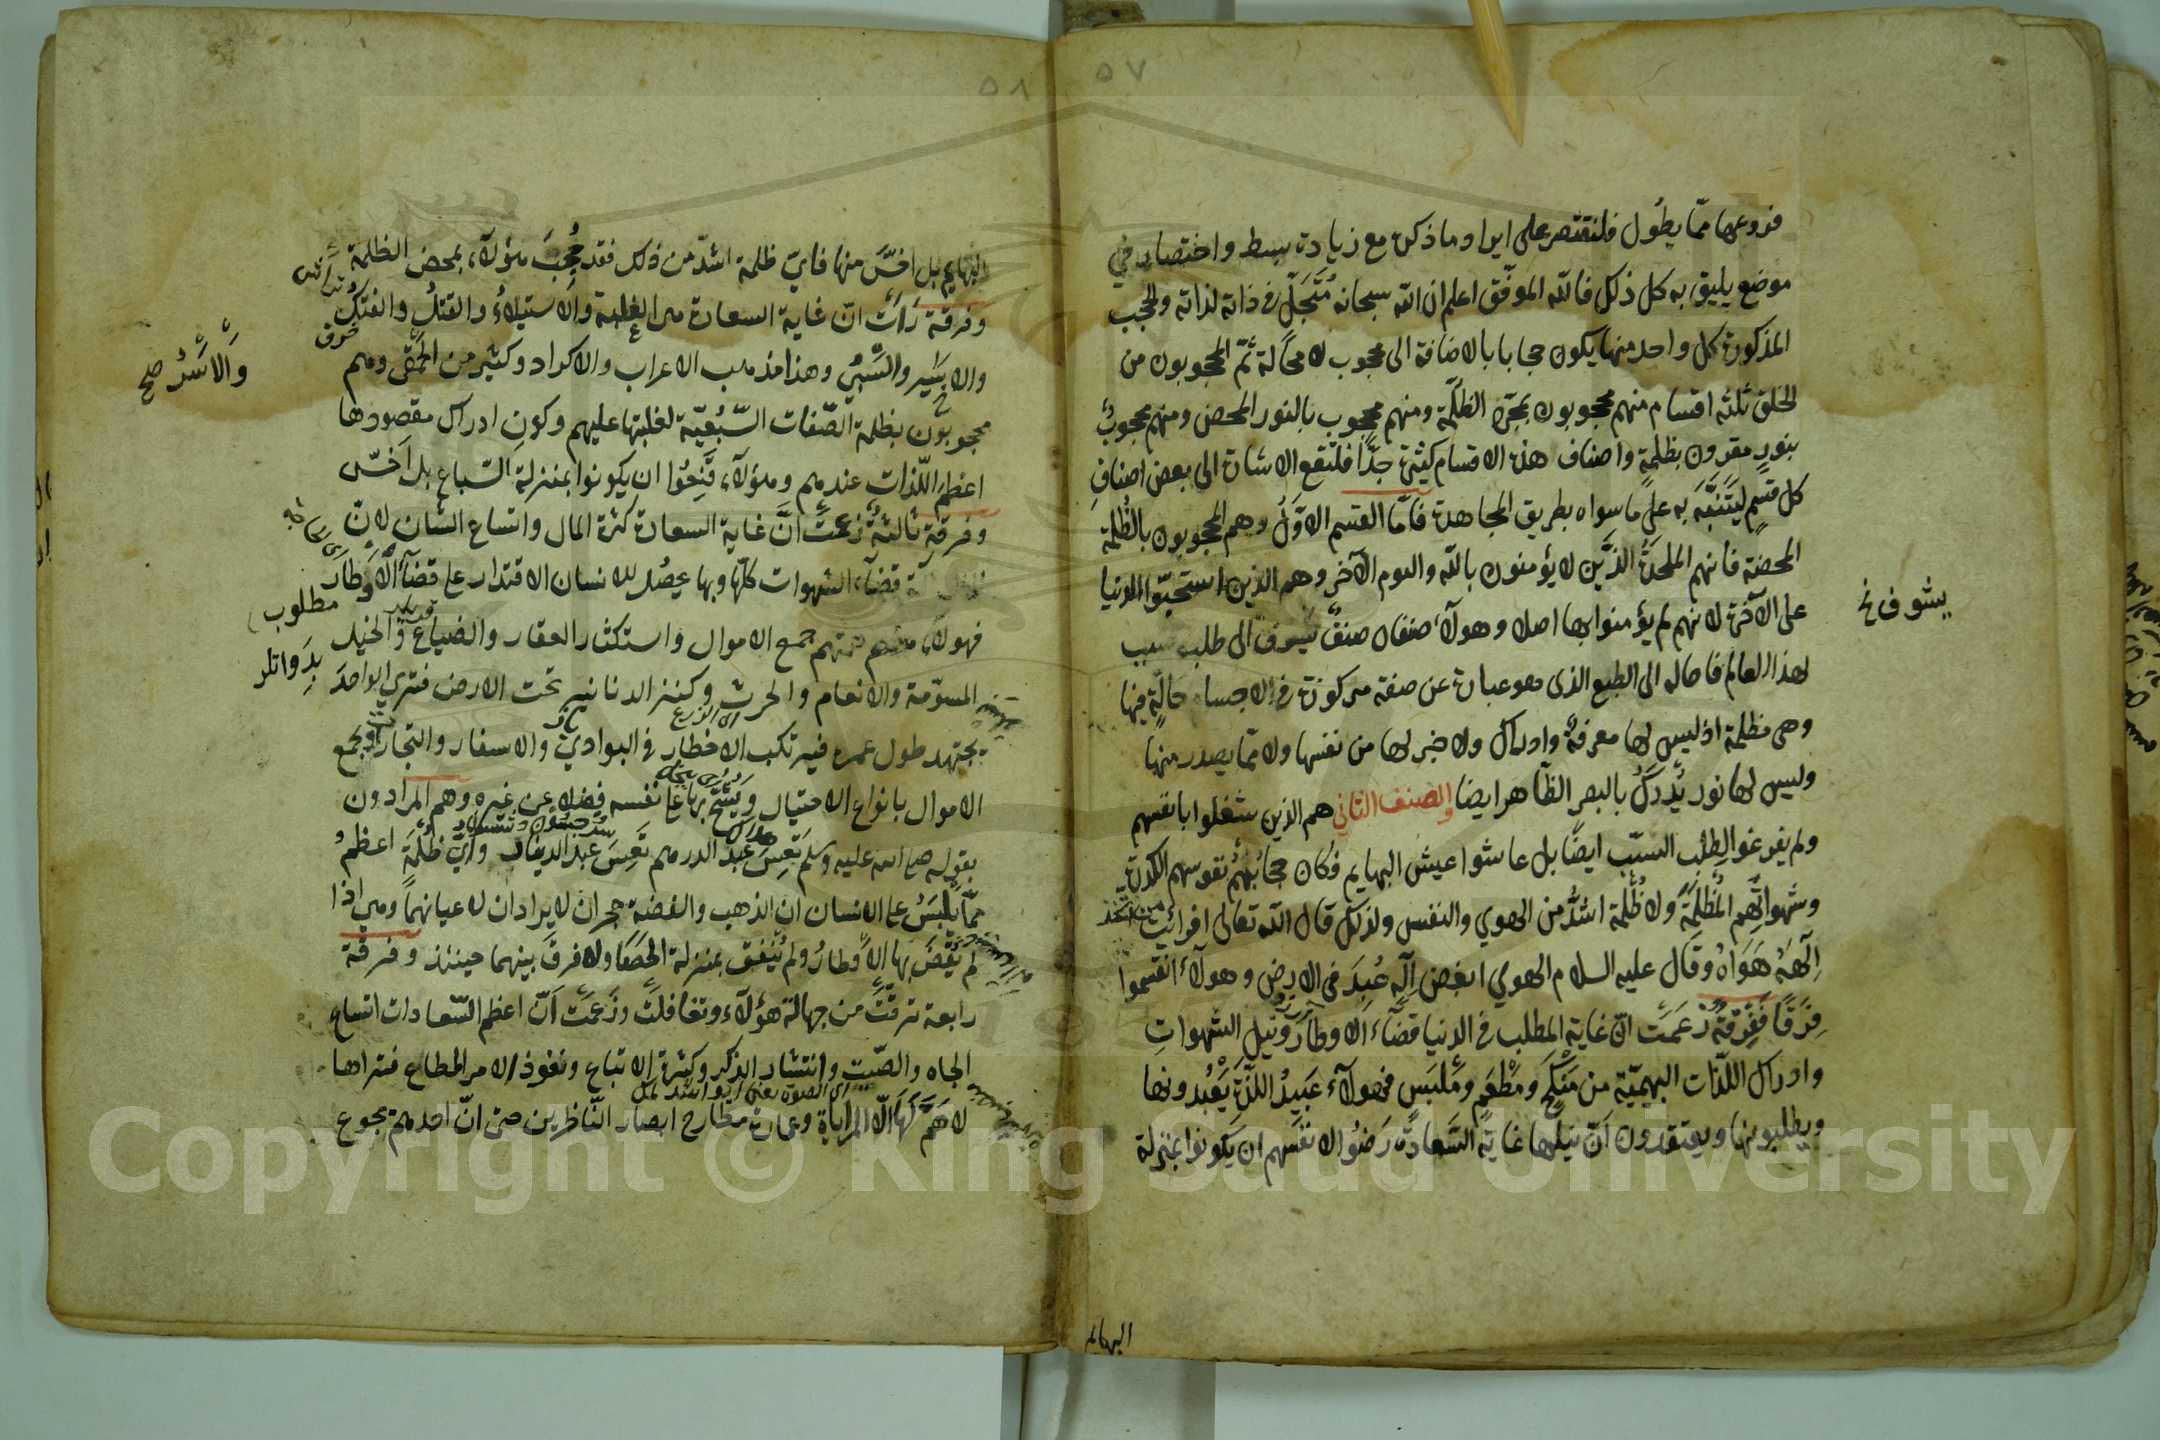 ٥٧
فروعها مما يطول فلنقتصر على ايراد ما ذكر مع زيادة بسط واختصار في
موضع يليق به كل ذلك فالله الموفق اعلم ان الله سبحانه مُتَجَلٍّ في ذاته لذاته والحجب
المذكورة كل واحد منها يكون حجابا بالاضافة الى محجوب لا محالة ثمّ المحجوبون من
الخلق ثلثه اقسام منهم محجوبون بمجرّد الظلمة ومنهم محجوب بالنور المحض ومنهم محجوبٌ
بنورٍ مقرون بظلمةٍ واصناف هذه الاقسام كثيرة جدًّا فلتقع الاشارة الى بعض اصناف
كل قسمٍ ليَتَنَبَّهَ به على ما سواه بطريق المجاهدة فأمّا القسم الاوّلُ وهم المحجوبون بالظُلمة
المحضة فانهم الملحدَةُ الذَّين لا يؤمنون بالله واليوم الآخر وهم الذين استحبّوا الدنيا
على الآخرة لانهم لم يؤمنوا بها اصلا وهولآء صنفان صنفٌ يشوف الى طلب سبب
يشوف خ
لهذا العالم فاحاله الى الطبع الذى هو عبارة عن صفة مركوزة فى الاجسام حالّةٍ فيها
وهى مظلمة اذ ليس لها معرفة وادراك ولا خبر لها من نفسها ولا ممّا يصدر منها
وليس لها نور يُدرَكُ بالبصر الظاهر ايضا والصنف الثاني هم الذين شغلوا بانفسهم
ولم يفرغوا لِطَلَبِ السبّب ايضًا بل عاشوا عيش البهايم فكان حجابُهُم نفوسهم الكدرة
وشهواتُهم المُظلِمَةُ ولا ظُلمة اشدُّ من الهوي والنفس ولذلك قال الله تعالى افرأيت من اتخذ
اِلَهَهُ هَوَاهُ وقال عليه السلام الهوي ابغض اِلَهٍ عُبِدَ فى الارض وهولآء انقسموا
فِرَقًا فَفِرْقَةٌ زَعَمَتْ انّ غاية المطلب فى الدنيا قضاء الاوطار ونيل الشهوات
وادراك اللذّات البهيميّة من مَنْكَحٍ ومَطْعَمٍ ومَلْبَسٍ فهولآء عَبيدُ اللذّةِ يَعْبُدونها
ويطلبونها ويعتقدون اَنَّ نَيلها غاية السَّعادة رَضُوا لا نفسهم ان يكونوا بمنزلة
البهايم
٥٨
البهايم بل اخسَّ منها فايّ ظلمة اشدّ من ذلك فقد حُجِبَ هؤلآء بمحض الظلمة
وفرقة رَأَتْ انّ غاية السعادة هى الغلبة والاستيلاءُ والقتلُ والفتكُ
والاسَرُ صح
والسَّبْيُ وهذا مذهب الاعراب والاكراد وكثير من الحَمْقَى وهم
محجوبون بظلمة الصّفات السَّبُعيّة لغلبتها عليهم وكون ادراك مقصودها
اعظمَ اللذّات عندهم وهؤلآء قَنِعُوا ان يكونوا بمنزلة السّباع بل اَخَسّ
وفرقة ثالثةٌ زعمتْ انَّ غاية السعادة كثرة المال واتساع الشان لانّ
قضآء الشهوات كلّها وبها يحصُل للانسان الاقتدار على قضآء الاَوطار
مطلوب
فهولآء همّتهم جمع الاموال واستكثار العقار والضياع والخيل
المسوّمة والانعام والحرث وكنز الدنانير تحت الارض فترى الواحدَ
يجتهد طول عمره فيرتكب الاخطار فى البوادي والاسفار والبحار ويجمع
الاموال بانواع الاحتيال ويَشُحّ بها على نفسه فضلا عن غيره وهم المرادون
بقوله صلى الله عليه وسلم تَعِسَ عَبدُ الدرهم تَعِسَ عَبدُ الدينار وايّ ظُلْمَةٍ اعظمُ
ممّا يُلْبِسُ على الانسان ان الذهب والفضة حجران لا يرادان لاعيانهما وهي اذا
لم يُقضَ بها الاَوطارُ ولم يُنفَق بمنزلة الحَصَا ولا فرقَ بينهما حينئذ وفرقة
رابعة ترقّت من جهالة هؤلآء وتغافلت وزَعمَت اَنّ اعظم السّعادات اتساع
الجاه والصّيت وانتشار الذكر وكثرة الاتباع ونفوذ الامر المطاع فتراها
لا هَمَّ لَها الّا المراياة وعمارة مطارح ابصار النّاظرين حتى انّ احدهم يجوع
Copyright © King Saud University